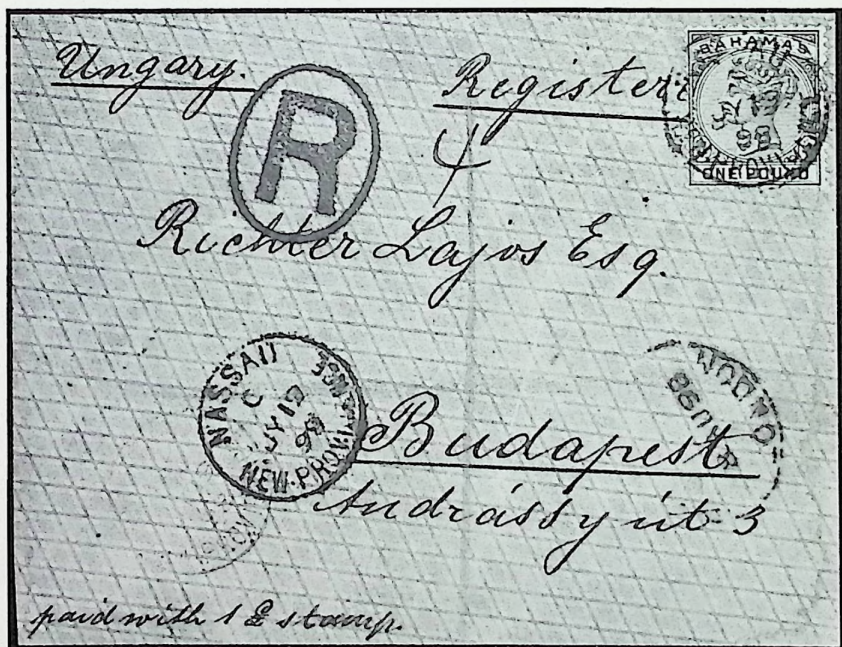 Ungary.
Register
BAHAMAS
ONE POUND
R
4
Richter Lajos Esq.
NASSAU
C
JY 19
98
NEW·PROV
LONDON
98
Budapest
Andrássy út 3
paid with 1 £ stamp.